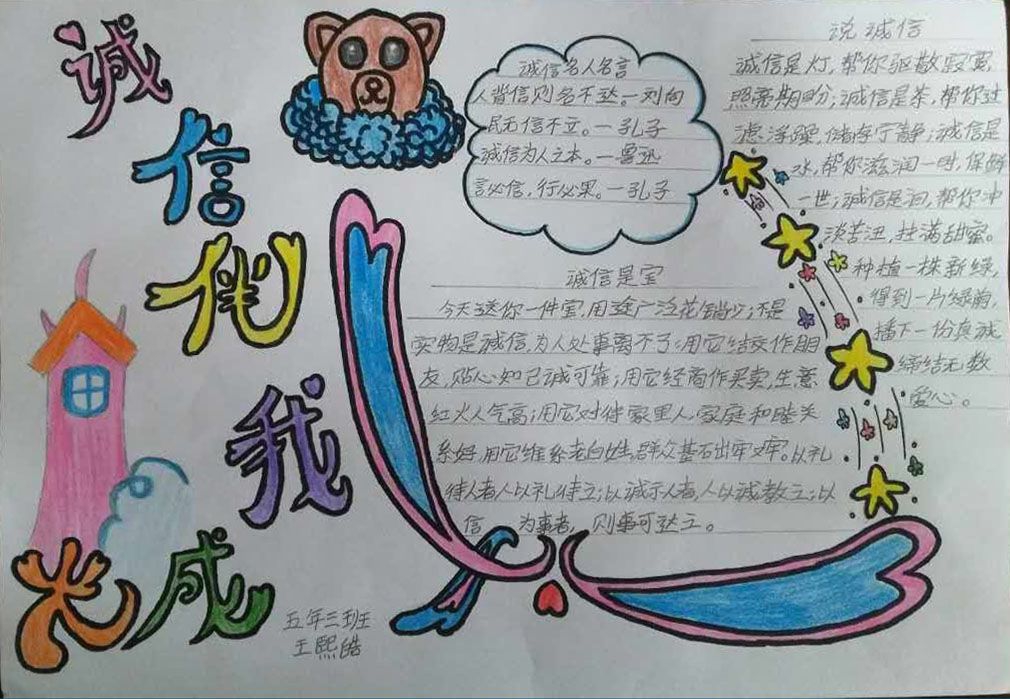 诚
信
伴
我
成
长
诚信名人名言
人背信则名不达。一刘向
民无信不立。一孔子
诚信为人之本。一鲁迅
言必信，行必果。一孔子
说诚信
诚信是灯，帮你驱散寂寞，
照亮期盼；诚信是茶，帮你过
滤浮躁，储存宁静；诚信是
水，帮你滋润一时，保鲜
一世；诚信是泪，帮你冲
淡苦涩，挂满甜蜜。
种植一株新绿，
得到一片绿荫，
播下一份真诚
缔结无数
爱心。
诚信是宝
今天送你一件宝，用途广泛花销少；不是
实物是诚信，为人处事离不了；用它结交作朋
友，贴心知己诚可靠；用它经商作买卖，生意
红火人气高；用它对待家里人，家庭和睦关
系好，用它维系老百姓，群众基石出牢又牢。以礼
待人者人以礼待立；以诚示人者，人以诚教立；以
信 为事者，则事可达立。
五年三班
王熙皓